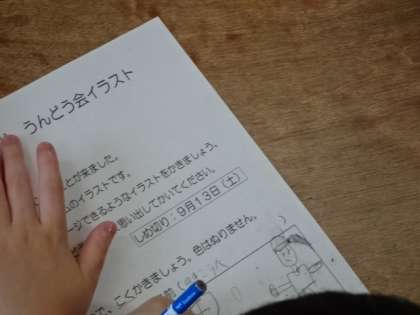 うんどう会イラスト
とが来ました。
のイラストです。
ージできるようなイラストをかきましょう。
思い出してかいてください。
しめ切り：９月１３日（土）
で、こくかきましょう。色はぬりません。